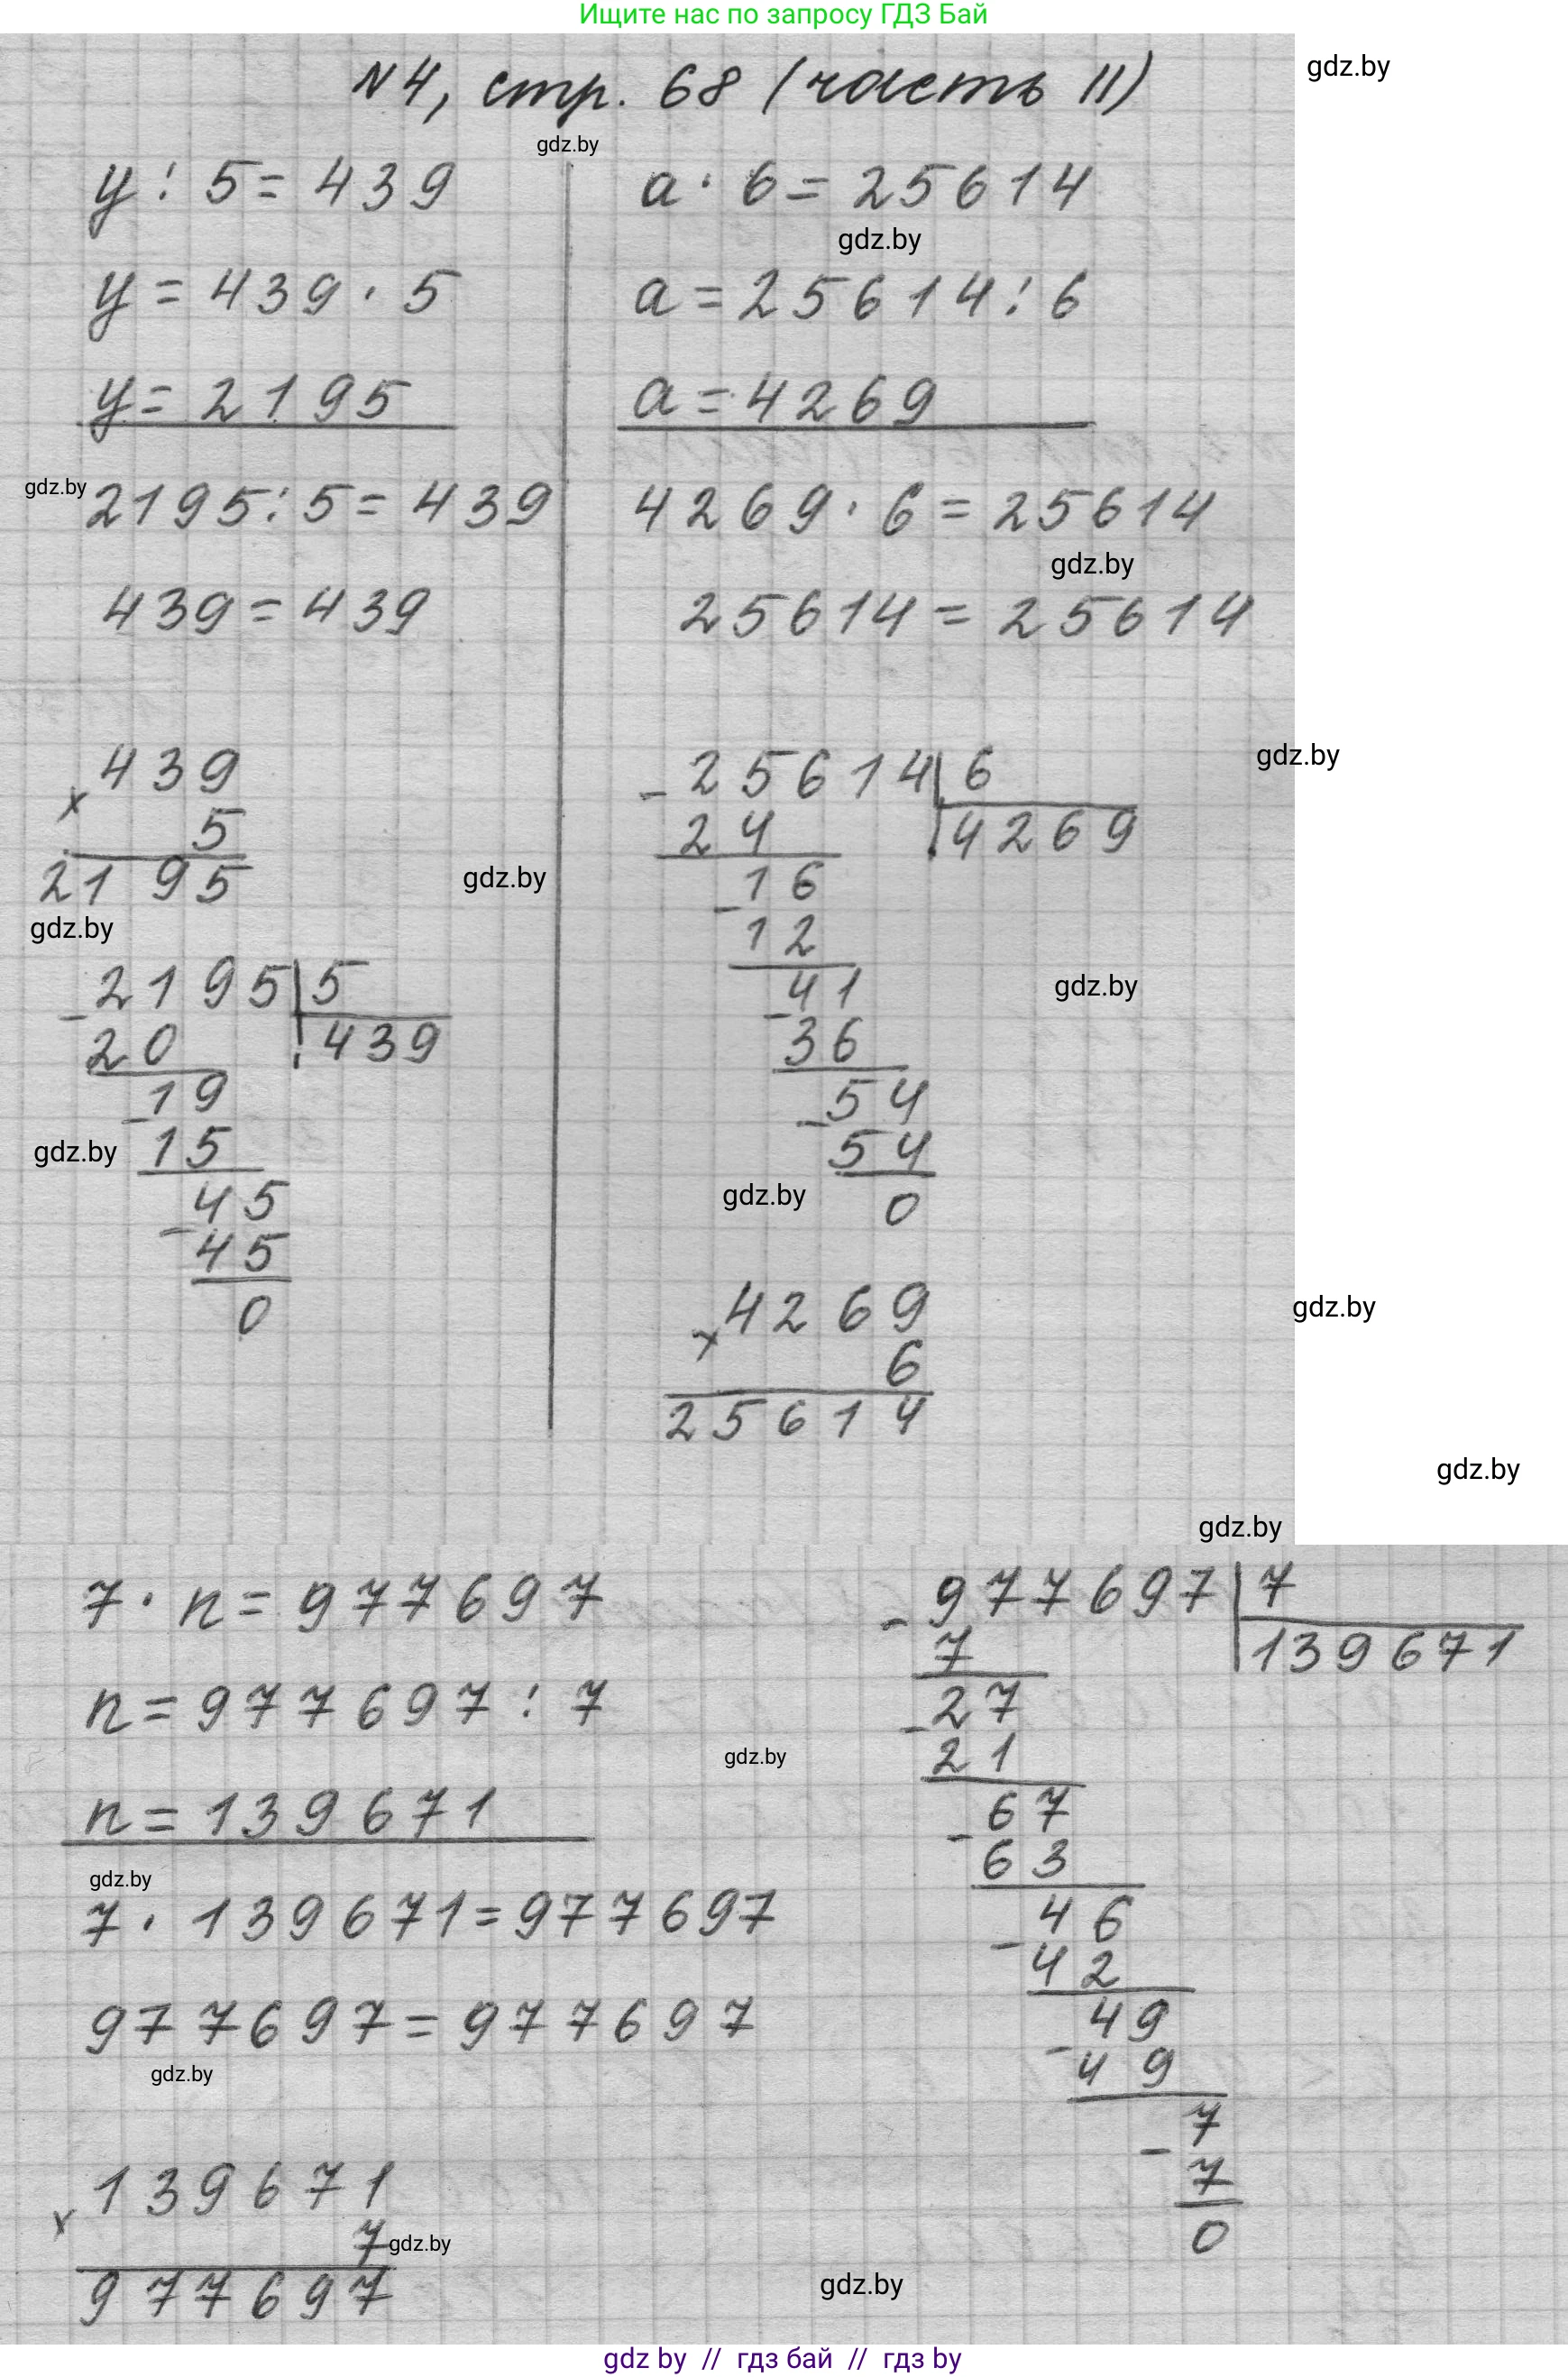 Ищите нас по запросу ГДЗ Бай
N4, стр. 68 (часть II)
gdz.by
gdz.by
y : 5 = 439
y = 439 · 5
y = 2195
gdz.by
2195 : 5 = 439
439 = 439
× 439
5
2195
gdz.by
gdz.by
- 2195 | 5
20 439
- 19
15
gdz.by
- 45
45
0
a · 6 = 25614
gdz.by
a = 25614 : 6
a = 4269
4269 · 6 = 25614
gdz.by
25614 = 25614
gdz.by
- 25614 | 6
24 4269
- 16
12
- 41
gdz.by
36
- 54
54
gdz.by
0
× 4269
gdz.by
6
25614
gdz.by
gdz.by
7 · n = 977697
n = 977697 : 7
gdz.by
n = 139671
gdz.by
7 · 139671 = 977697
977697 = 977697
gdz.by
× 139671
7
gdz.by
977697
- 977697 | 7
7 139671
- 27
21
- 67
63
- 46
42
- 49
49
- 7
7
0
gdz.by
gdz by // гдз бай // гдз by